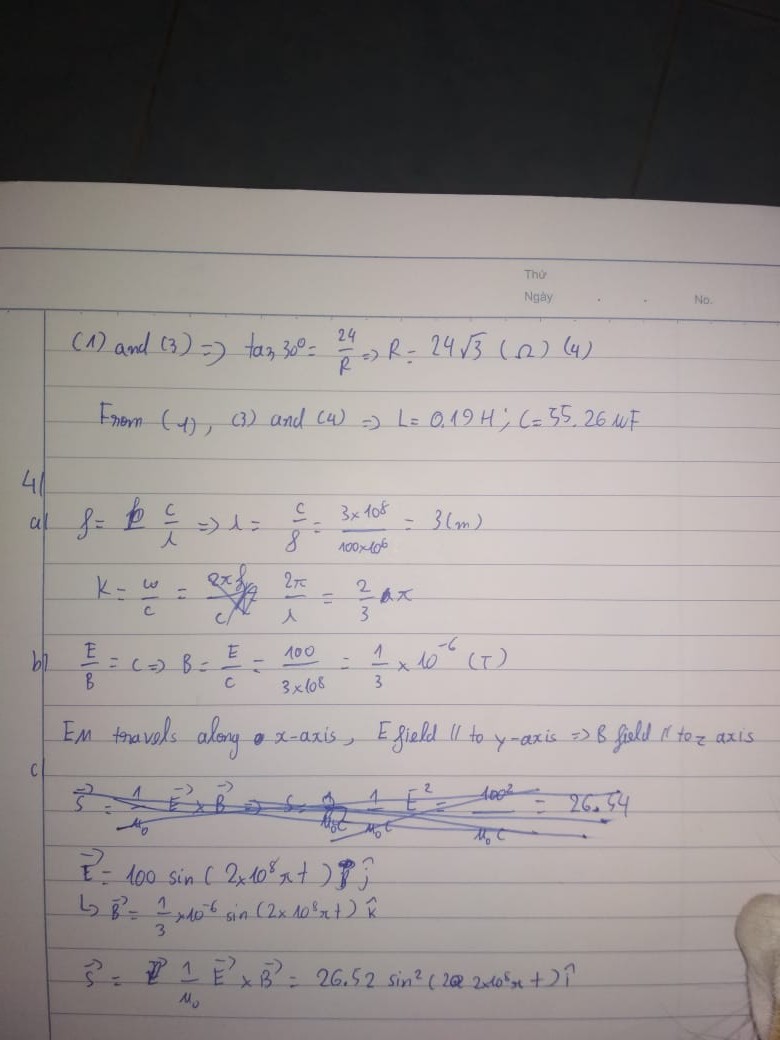 Thứ
Ngày . . No.
(1) and (3) => tan 30° = 24/R => R = 24√3 (Ω) (4)
From (1), (3) and (4) => L = 0.19 H ; C = 55.26 μF
4/
a) f = c/λ => λ = c/f = 3×10⁸/100×10⁶ = 3 (m)
K = ω/c = 2π/λ = 2/3 π
b) E/B = c => B = E/c = 100/3×10⁸ = 1/3 × 10⁻⁶ (T)
EM travels along x-axis, E field // to y-axis => B field // to z axis
c)
S⃗ = 1/μ₀ E⃗ × B⃗ => S = 1/μ₀c E² = 100²/μ₀c = 26.54
E⃗ = 100 sin (2×10⁸πt) ĵ
↳ B⃗ = 1/3 ×10⁻⁶ sin (2×10⁸πt) k̂
S⃗ = 1/μ₀ E⃗ × B⃗ = 26.52 sin² (2×10⁸πt) î